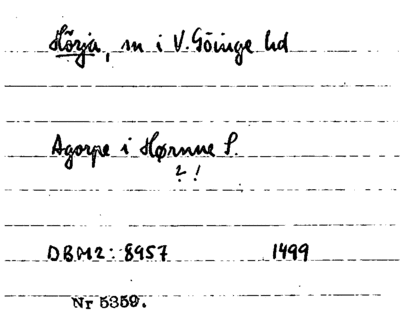 Hörja, sn i V. Göinge hd
Agorpe i Hørnne S.
? !
DBM2: 8957 1499
Nr 5359.